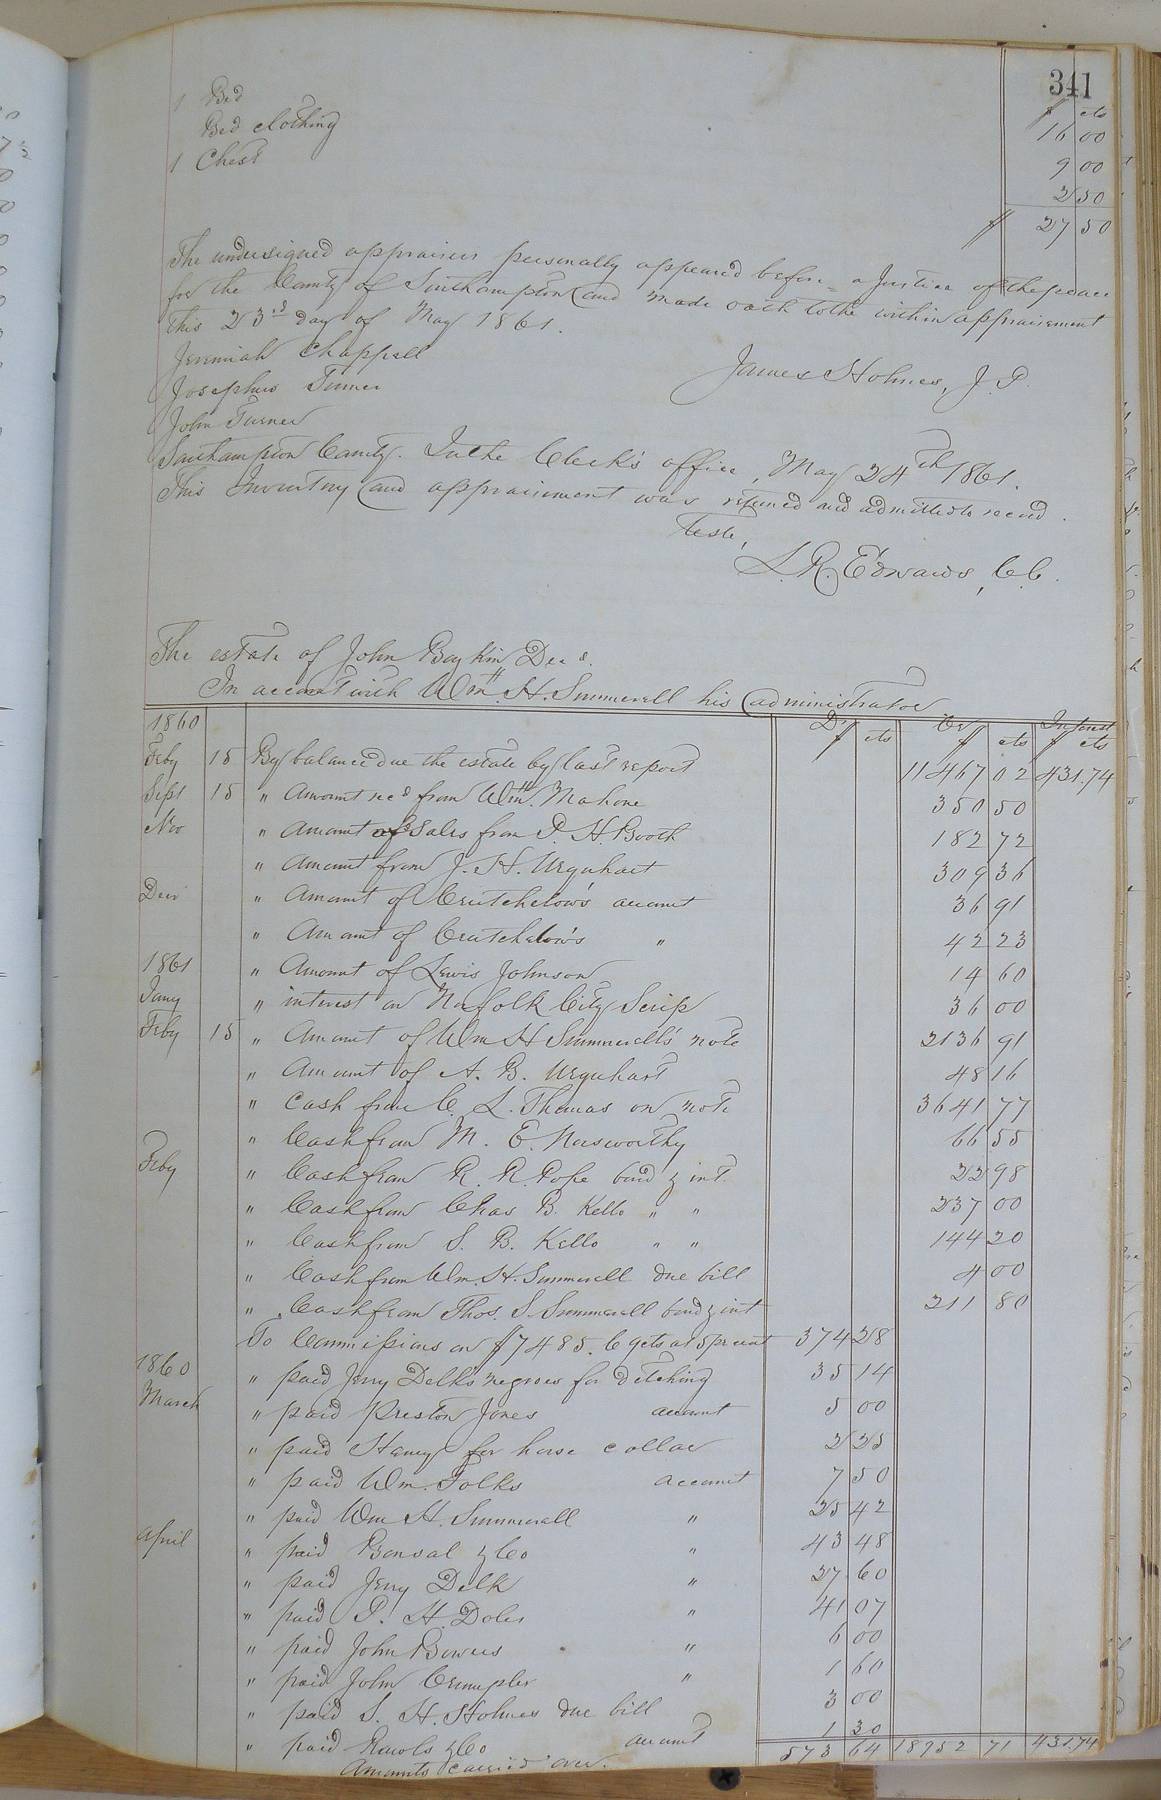 341
$ cts
1 Bed 16 00
Bed clothing 9 00
1 Chest 2 50
$ 27 50
The undersigned appraisers personally appeared before a Justice of the peace
for the County of Southampton and made oath to the within appraisement
this 23rd day of May 1861.
Jeremiah Chappell
James Holmes, J. P.
Josephus Turner
John Turner
Southampton County. In the Clerk's office, May 24th 1861.
This Inventory and appraisement was returned and admitted to record.
Teste,
L. R. Edwards, C. C.
The estate of John Boykin Decd.
In account with Wm. H. Summerell his administrator
1860 Dr Cr Interest
$ cts $ cts $ cts
Feby 15 By balance due the estate by last report 11467 02 431.74
Sept 15 " Amount recd from Wm. Mahone 350 50
Nov " Amount of Sales from P. H. Booth 182 72
" Amount from J. H. Urquhart 309 36
Decr " Amount of Crutchelow's account 36 91
" Amount of Crutchelow's " 42 23
1861 " Amount of Lewis Johnson 14 60
Jany " interest on Norfolk City Scrip 36 00
Feby 15 " Amount of Wm H Summerell's note 2136 91
" Amount of A. B. Urquhart 48 16
" Cash from C. L. Thomas on note 3641 77
" Cash from M. E. Norsworthy 66 55
Feby " Cash from R. R. Pope bond & int. 22 98
" Cash from Chas B. Kello " " 237 00
" Cash from S. B. Kello " " 144 20
" Cash from Wm. H. Summerell due bill 4 00
" Cash from Thos. S. Summerell bond & int 211 80
To Commissions on $7485.69cts at 5 pr cent 374 28
1860 " paid Jerry Delk's negroes for ditching 35 14
March " paid Preston Jones account 5 00
" paid Haney for horse collar 2 25
" paid Wm. Folks account 7 50
" paid Wm H. Summerell " 25 42
April " paid Bonsal & Co " 43 48
" paid Jerry Delk " 27 60
" paid P. H. Doles " 41 07
" paid John Bowers " 6 00
" paid John Crumpler " 1 60
" paid S. H. Holmes due bill 3 00
" paid Rawls & Co account 1 30
Amounts carried over. 573 64 18952 71 431.74